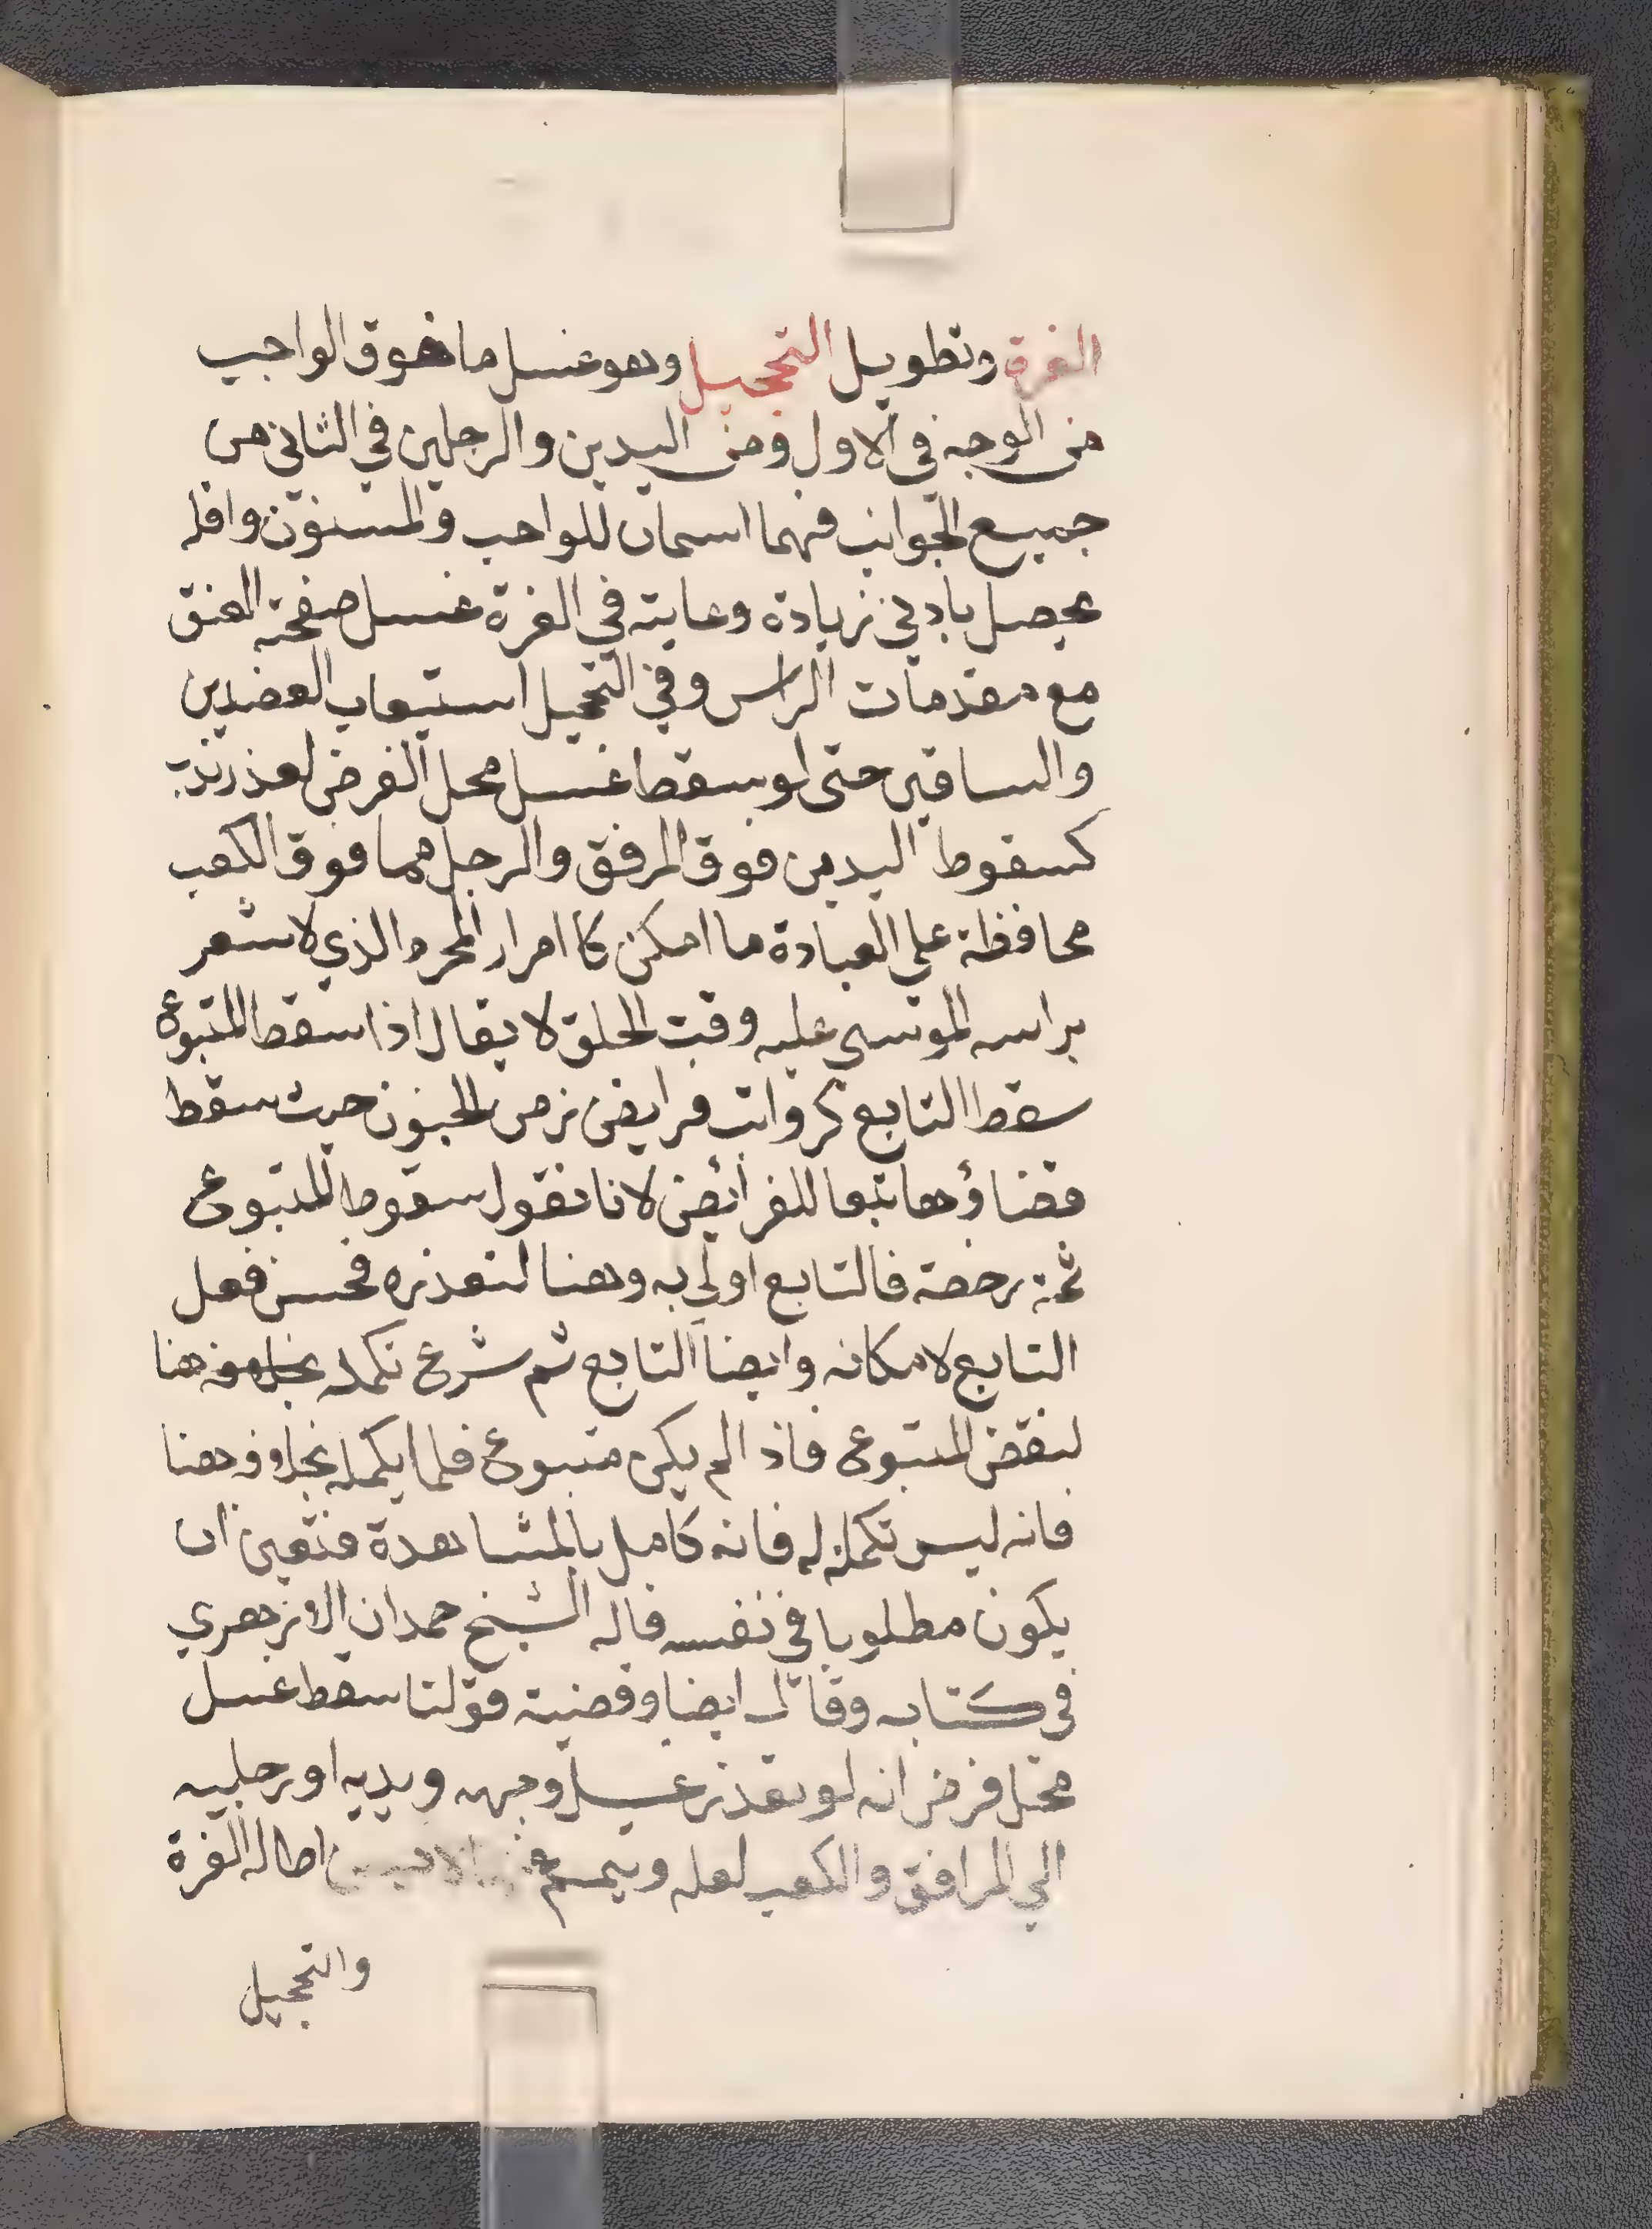 الغرة وتطويل التحجيل وهو غسل ما فوق الواجب
من الوجه في الاول ومن اليدين والرجلين في الثاني من
جميع الجوانب فهما اسمان للواجب والمسنون واقله
يحصل بادني زيادة وغايته في الغرة غسل صفحته العنق
مع مقدمات الراس وفي التحجيل استيعاب العضدين
والساقين حتى لو سقط غسل محل الفرض لعذر ندب
كسقوط اليد من فوق المرفق والرجل مما فوق الكعب
محافظة علي العبادة ما امكن كا امرار المحرم الذي لا شعر
براسه الموسي عليه وقت الحلق لا يقال اذا سقط المتبوع
سقط التابع كرواتب فرايض زمن الجنون حيث سقط
قضاؤها تبعا للفرائض لانا نقول سقوط المتبوع
ثمة رخصة فالتابع اولي به وهنا لتعذره فحسن فعل
التابع لامكانه وايضا التابع ثم شرع تكملة هنا
لنقض المتبوع فاذا لم يكن متبوع فلما يكمله بخلافه هنا
فانه ليس تكملة له فانه كامل بالمشاهدة فتعين ان
يكون مطلوبا في نفسه قاله الشيخ حمدان الازهري
في كتابه وقال ايضا وقضية قولنا سقط غسل
محل فرض انه لو تعذر غسل وجهه ويديه او رجليه
الي المرافق والكعب لعله وتيمم اطالة الغرة
والتحجيل